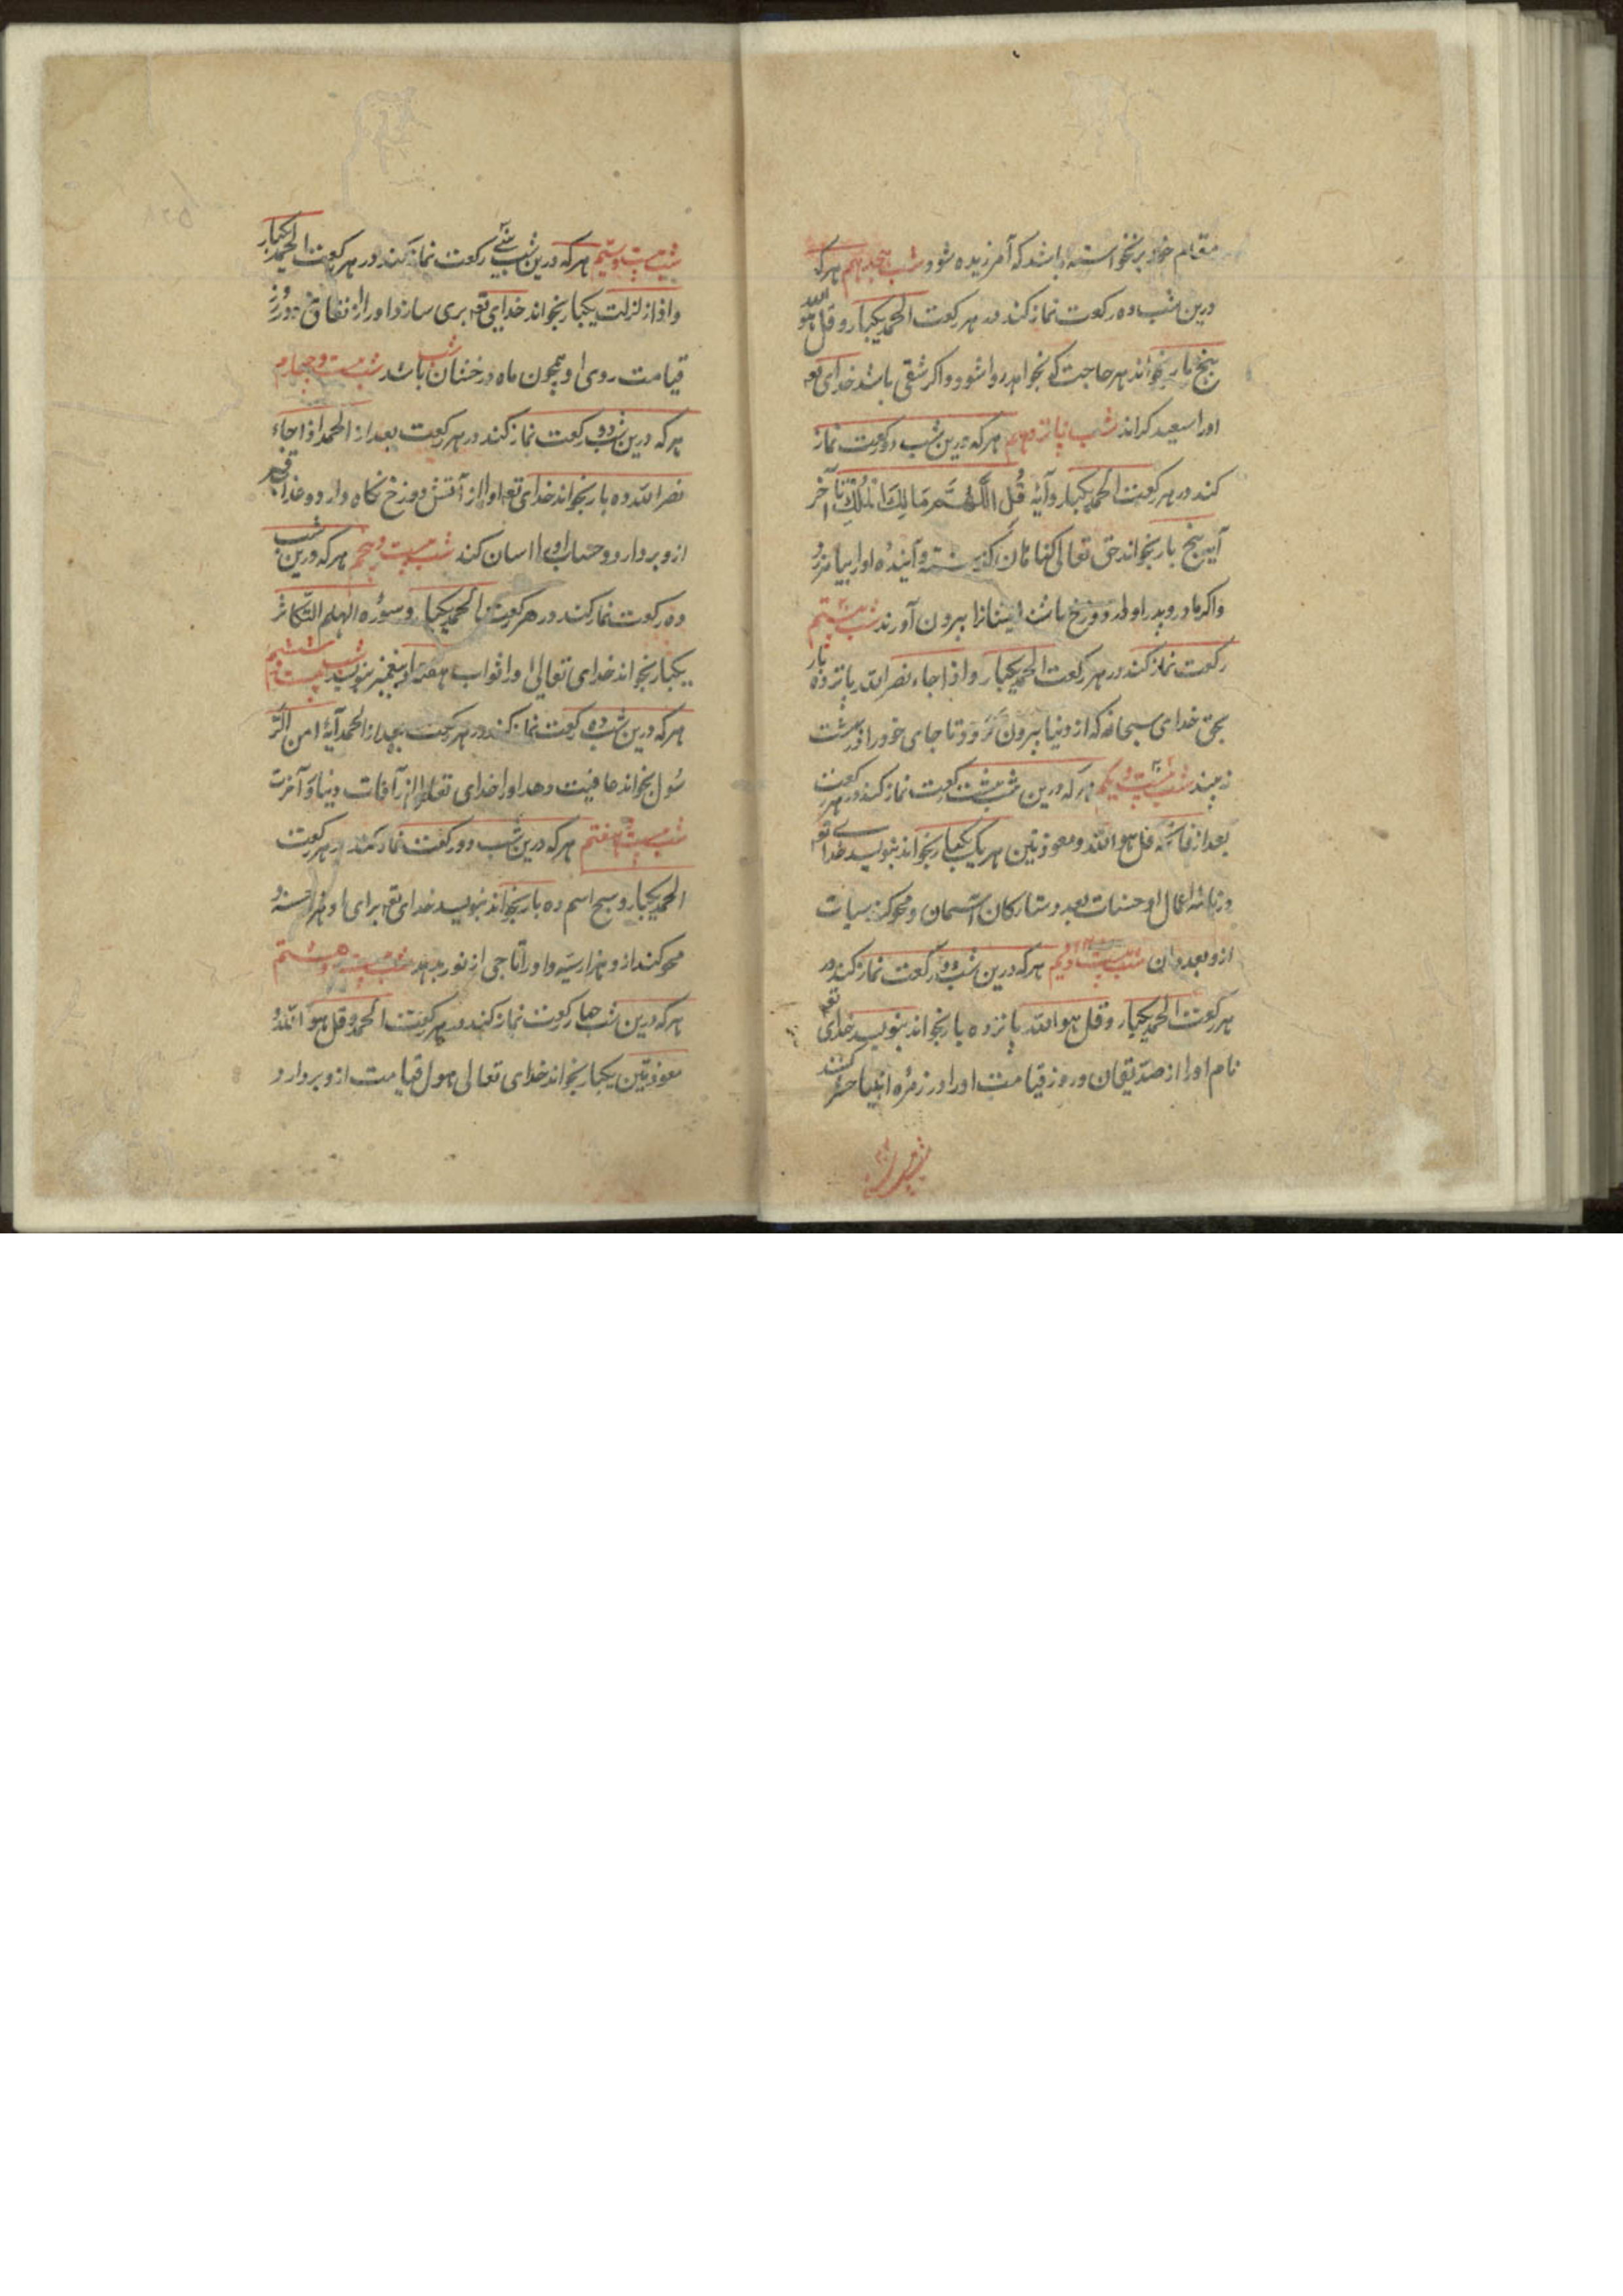 مقام خود برنخواسته باشد که آمرزیده شود شب هجدهم هرکه
درین شب ده رکعت نماز کند در هر رکعت الحمد یکبار و قل هو الله
پنج بار بخواند هر حاجت که بخواهد روا شود و اکر شقی باشد خدای تع
اورا سعید کراند شب پانزدهم هرکه درین شب دو رکعت نماز
کند در هر رکعت الحمد یکبار و آیهٔ قُل اللَّهُمَّ مَالِكَ المُلْكِ تا آخر
آیه پنج بار بخواند حق تعالی کناهان کذشته و آینده او را بیامرزد
واکر مادر و پدر او در دوزخ باشند ایشانرا بیرون آورند شب بیستم
رکعت نماز کند در هر رکعت الحمد یکبار و اذا جاء نصر الله پانزده بار
بحق خدای سبحانه که از دنیا بیرون نرود تا جای خود را در بهشت
نه بیند شب بیست و یکم هرکه درین شب هشت رکعت نماز کند در هر رکعت
بعد از فاتحه قل هو الله و معوذتین هر یک یکبار بخواند بنویسد خدای تع
در نامهٔ اعمال او حسنات بعدد ستارکان آسمان و محو کند سیات
ازو بعدد آن شب بیست و دیم هرکه درین شب دو رکعت نماز کند در
هر رکعت الحمد یکبار و قل هو الله پانزده بار بخواند بنویسد خدای تع
نام او را از صدیقان و روز قیامت او را در زمرهٔ انبیا حشر کنند
شب بیست و سیم هرکه درین شب سی رکعت نماز کند در هر رکعت الحمد یکبار
و اذا زلزلت یکبار بخواند خدای تع بری سازد اورا از نفاق و روز
قیامت روی او همچون ماه درخشان باشد شب بیست و چهارم
هرکه درین شب دو رکعت نماز کند در هر رکعت بعد از الحمد اذا جاء
نصر الله ده بار بخواند خدای تع اورا از آتش دوزخ نکاه دارد و عذاب قبر
ازو بردارد و حساب او را اسان کند شب بیست و پنجم هرکه درین شب
ده رکعت نماز کند در هر رکعت الحمد یکبار و سوره الهاکم التکاثر
یکبار بخواند خدای تعالی او را ثواب هفتاد پیغمبر بنویسد شب بیست و ششم
هرکه درین شب ده رکعت نماز کند در هر رکعت بعد از الحمد آیهٔ امن الرَّ
سُول بخواند عافیت دهد او را خدای تعالی از آفات دنیا و آخرت
شب بیست هفتم هرکه درین شب دو رکعت نماز کند در هر رکعت
الحمد یکبار و سبح اسم ده بار بخواند بنویسد خدای تع برای او هزار حسنه و
محو کند ازو هزار سیّه و او را تاجی از نور بدهد شب بیست و هشتم
هرکه درین شب چهار رکعت نماز کند در هر رکعت الحمد و قل هو الله و
معوذتین یکبار بخواند خدای تعالی هول قیامت ازو بردارد